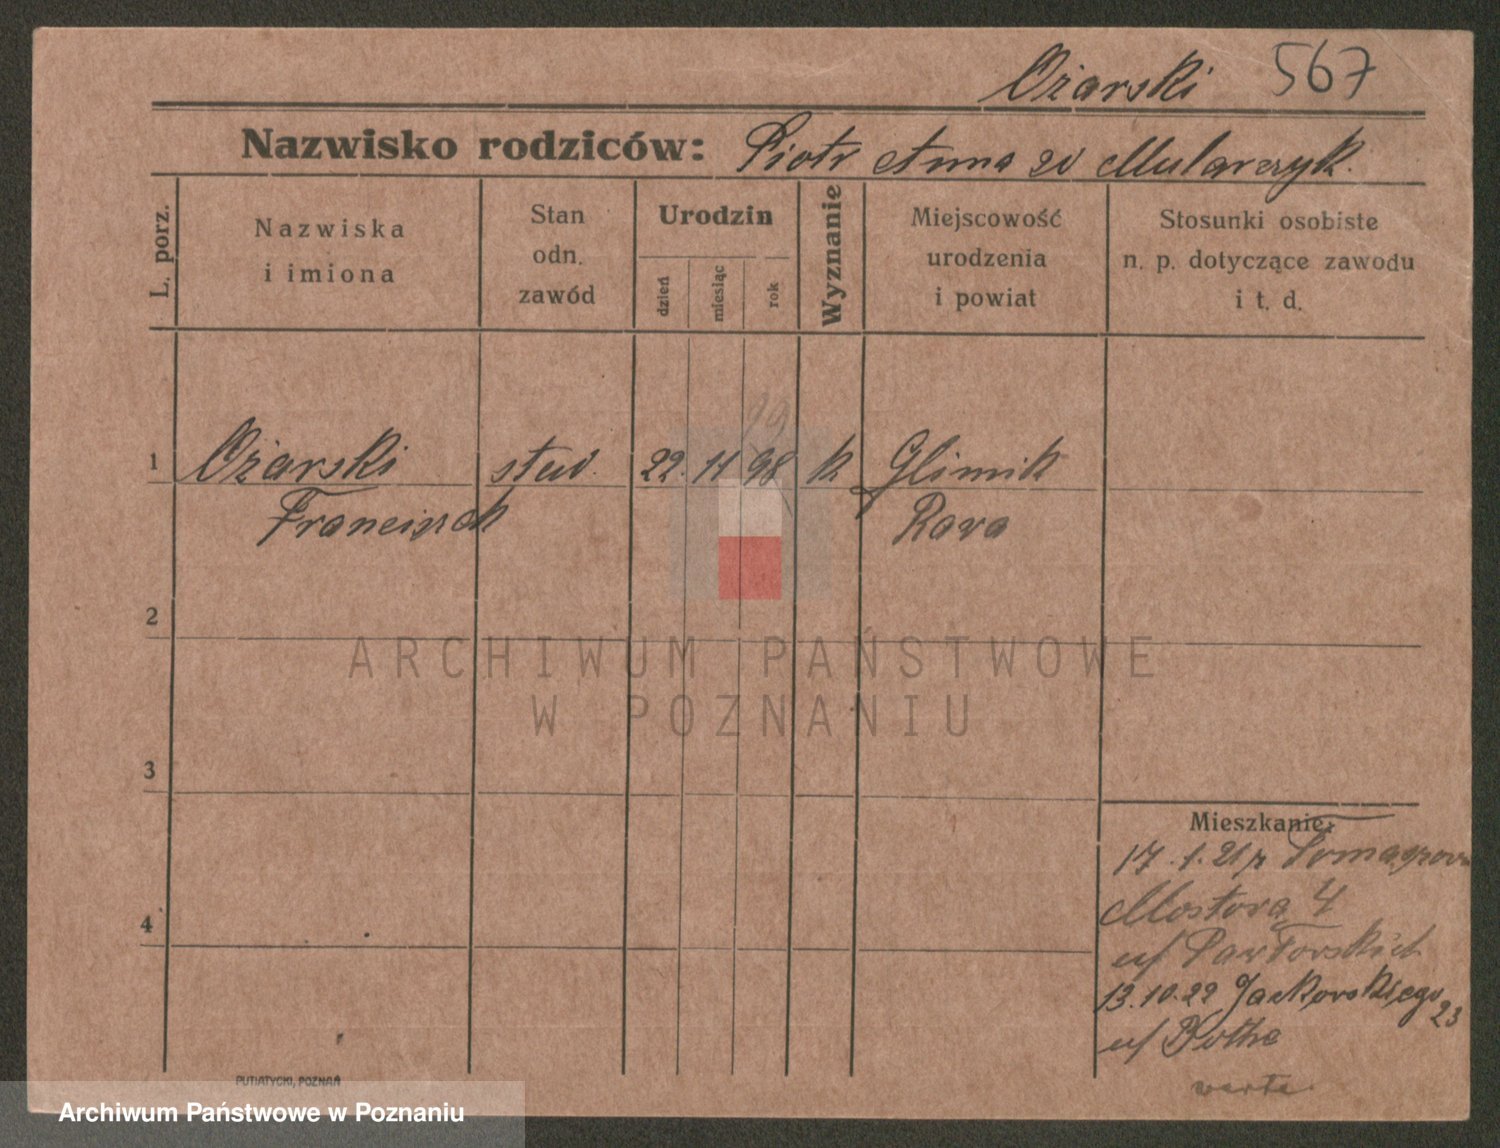 Ożarski 567
Nazwisko rodziców: Piotr Anna zd Mularczyk.
L. porz.
Nazwiska
i imiona
Stan
odn.
zawód
Urodzin
dzień
miesiąc
rok
Wyznanie
Miejscowość
urodzenia
i powiat
Stosunki osobiste
n. p. dotyczące zawodu
i t. d.
99
1 Ożarski stud. 22. 11 98 k Glimik
Franciszek Rava
2
3
4
Mieszkanie:
17.1.21 z
Mostova 4
u/ Pawłovskich
13.10.22 Jackovskiego 23
u/ Bothe
warta
PUTIATYCKI, POZNAŃ
ARCHIWUM PAŃSTWOWE
W POZNANIU
Archiwum Państwowe w Poznaniu